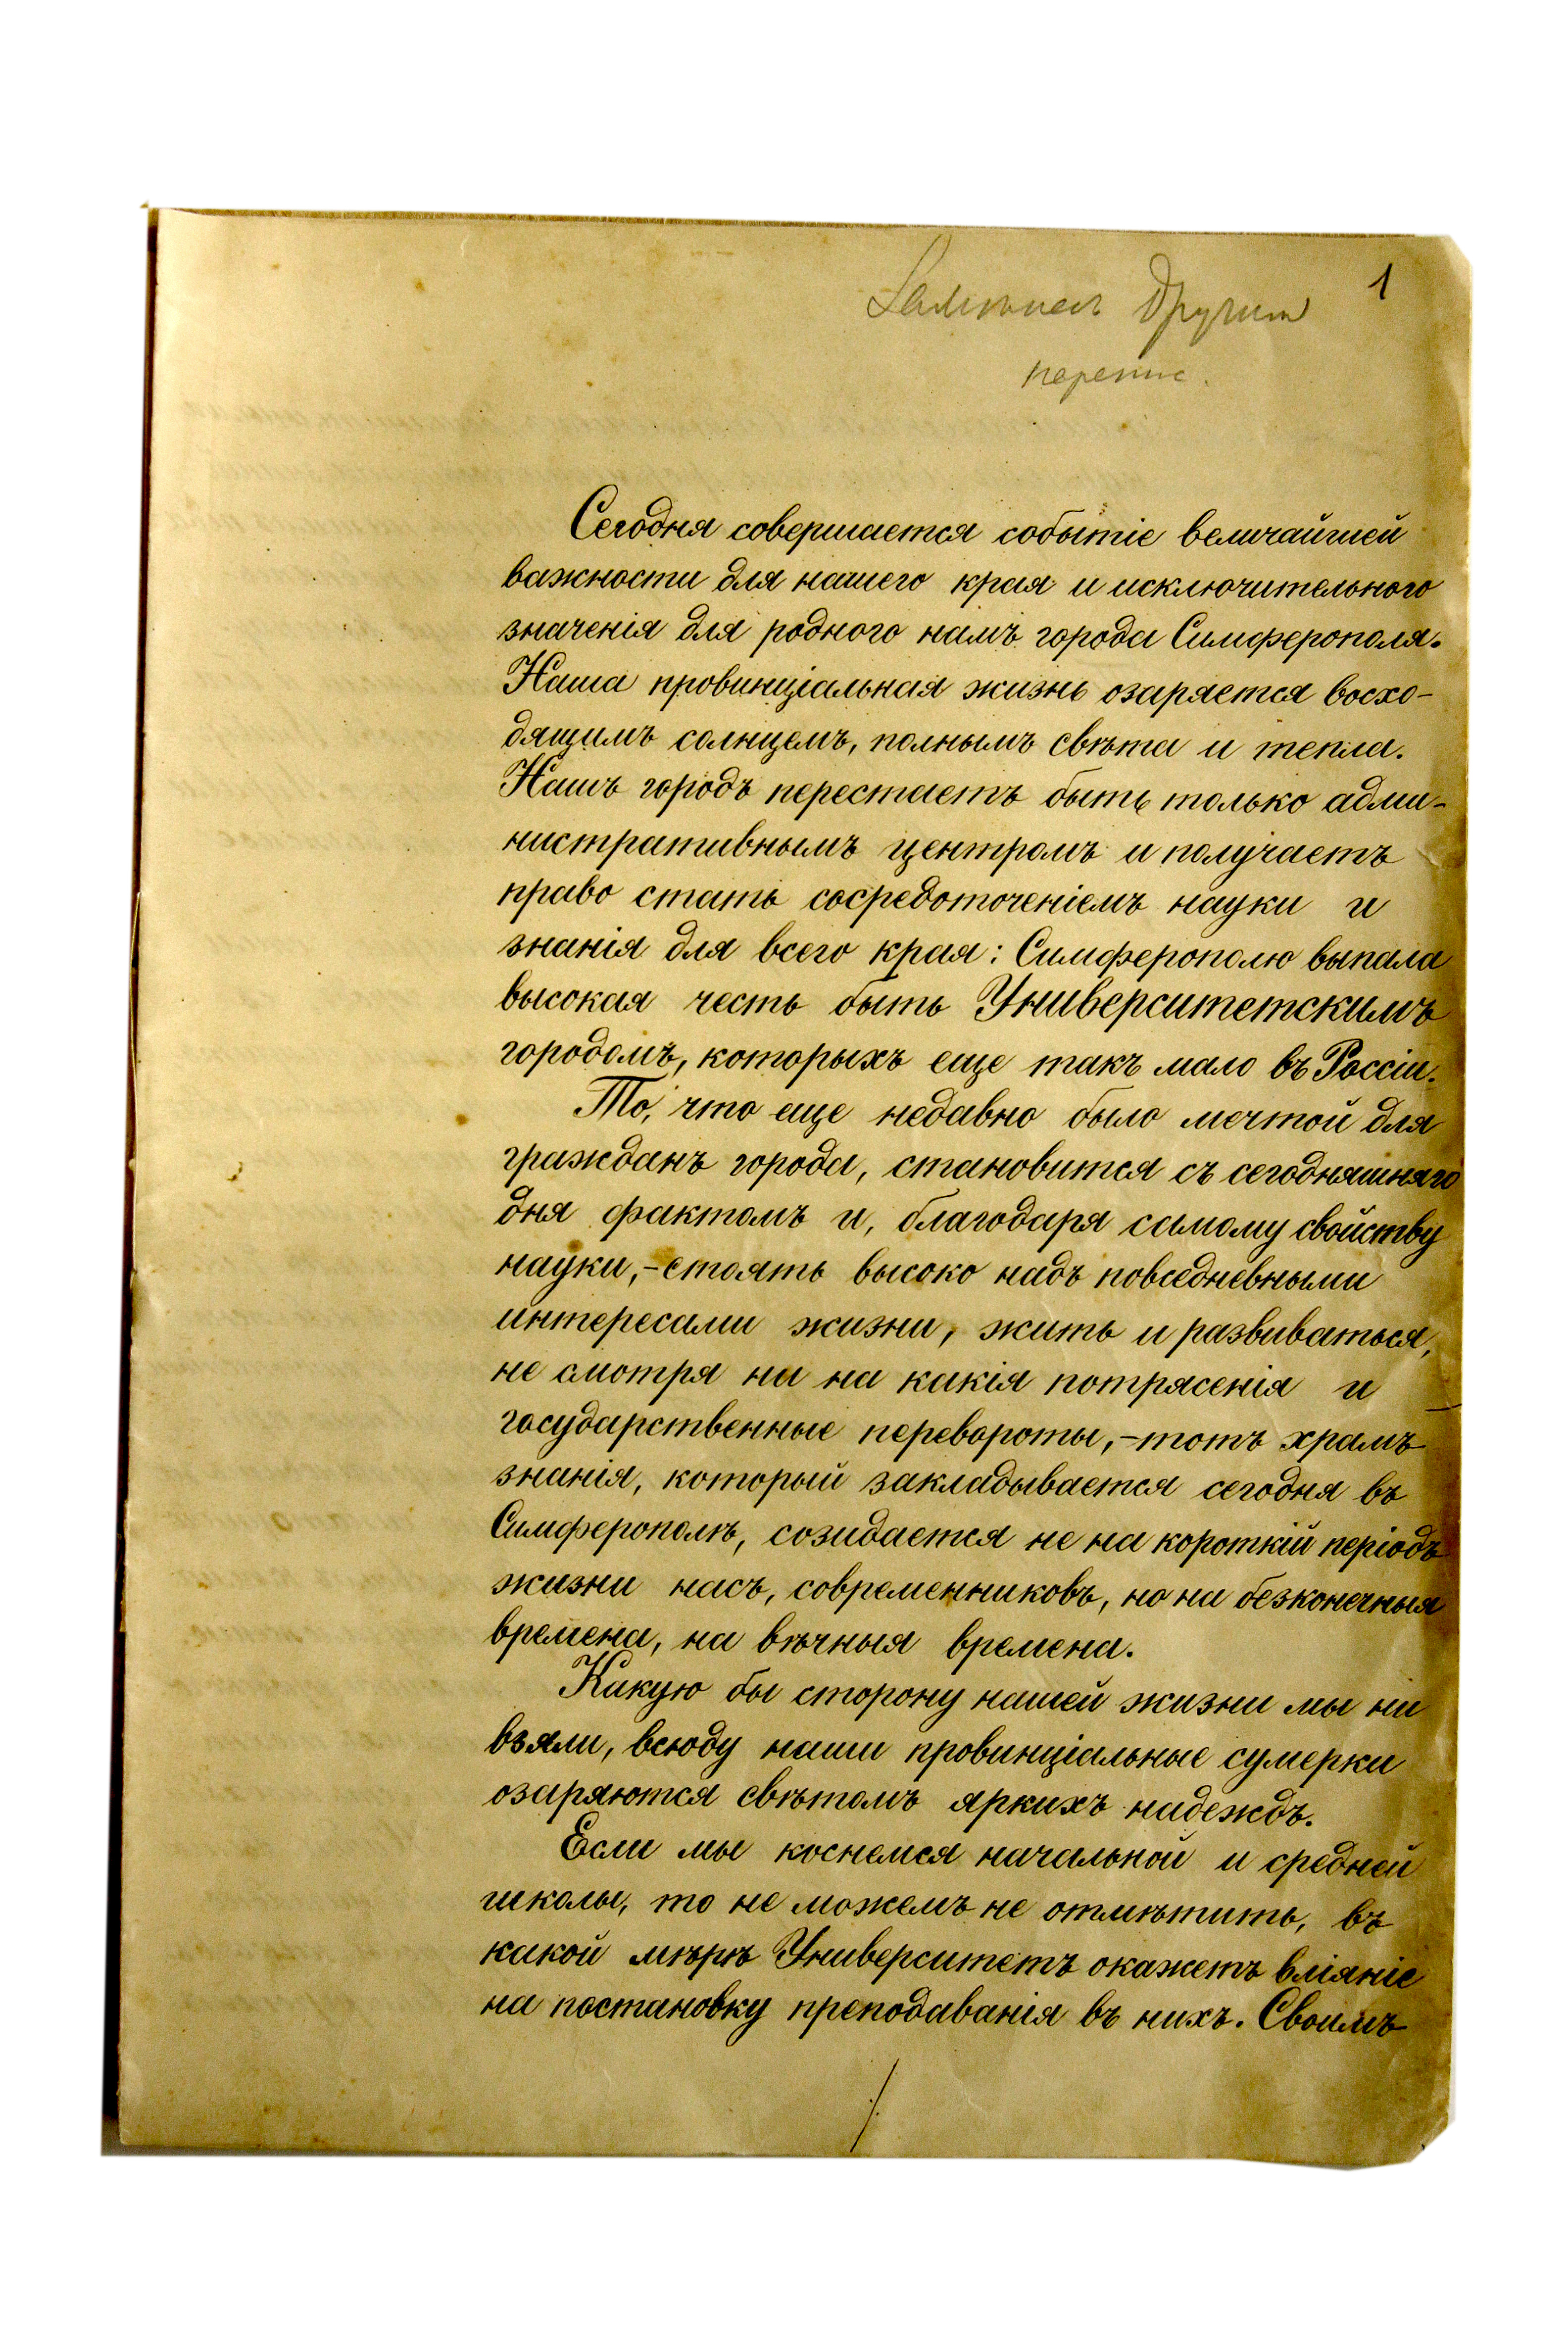 1
перепис.
Сегодня совершается событіе величайшей
важности для нашего края и исключительного
значенія для родного намъ города Симферополя.
Наша провинціальная жизнь озаряется восхо-
дящимъ солнцемъ, полнымъ свѣта и тепла.
Нашъ городъ перестаетъ быть только адми-
нистративнымъ центромъ и получаетъ
право стать сосредоточеніемъ науки и
знанія для всего края: Симферополю выпала
высокая честь быть Университетскимъ
городомъ, которыхъ еще такъ мало въ Россіи.
То, что еще недавно было мечтой для
гражданъ города, становится съ сегодняшняго
дня фактомъ и, благодаря самому свойству
науки,-стоять высоко надъ повседневными
интересами жизни, жить и развиваться,
не смотря ни на какія потрясенія и
государственные перевороты,-тотъ храмъ
знанія, который закладывается сегодня въ
Симферополѣ, созидается не на короткій періодъ
жизни насъ, современниковъ, но на безконечныя
времена, на вѣчныя времена.
Какую бы сторону нашей жизни мы ни
взяли, всюду наши провинціальные сумерки
озаряются свѣтомъ яркихъ надеждъ.
Если мы коснемся начальной и средней
школы, то не можемъ не отмѣтить, въ
какой мѣрѣ Университетъ окажетъ вліяніе
на постановку преподаванія въ нихъ. Своимъ
./.